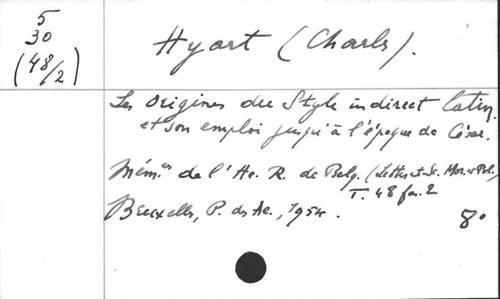 5
30
(48/2)
Hyart (Charls).
Les origines du Style indirect latin
et son emploi jusqu'à l'époque de César.
Mém.es de l'Ac. R. de Belg. (Lettres et Sc. Mor. et Pol.)
T. 48 fas. 2
Bruxelles, P. des Ac., 1954.
8°